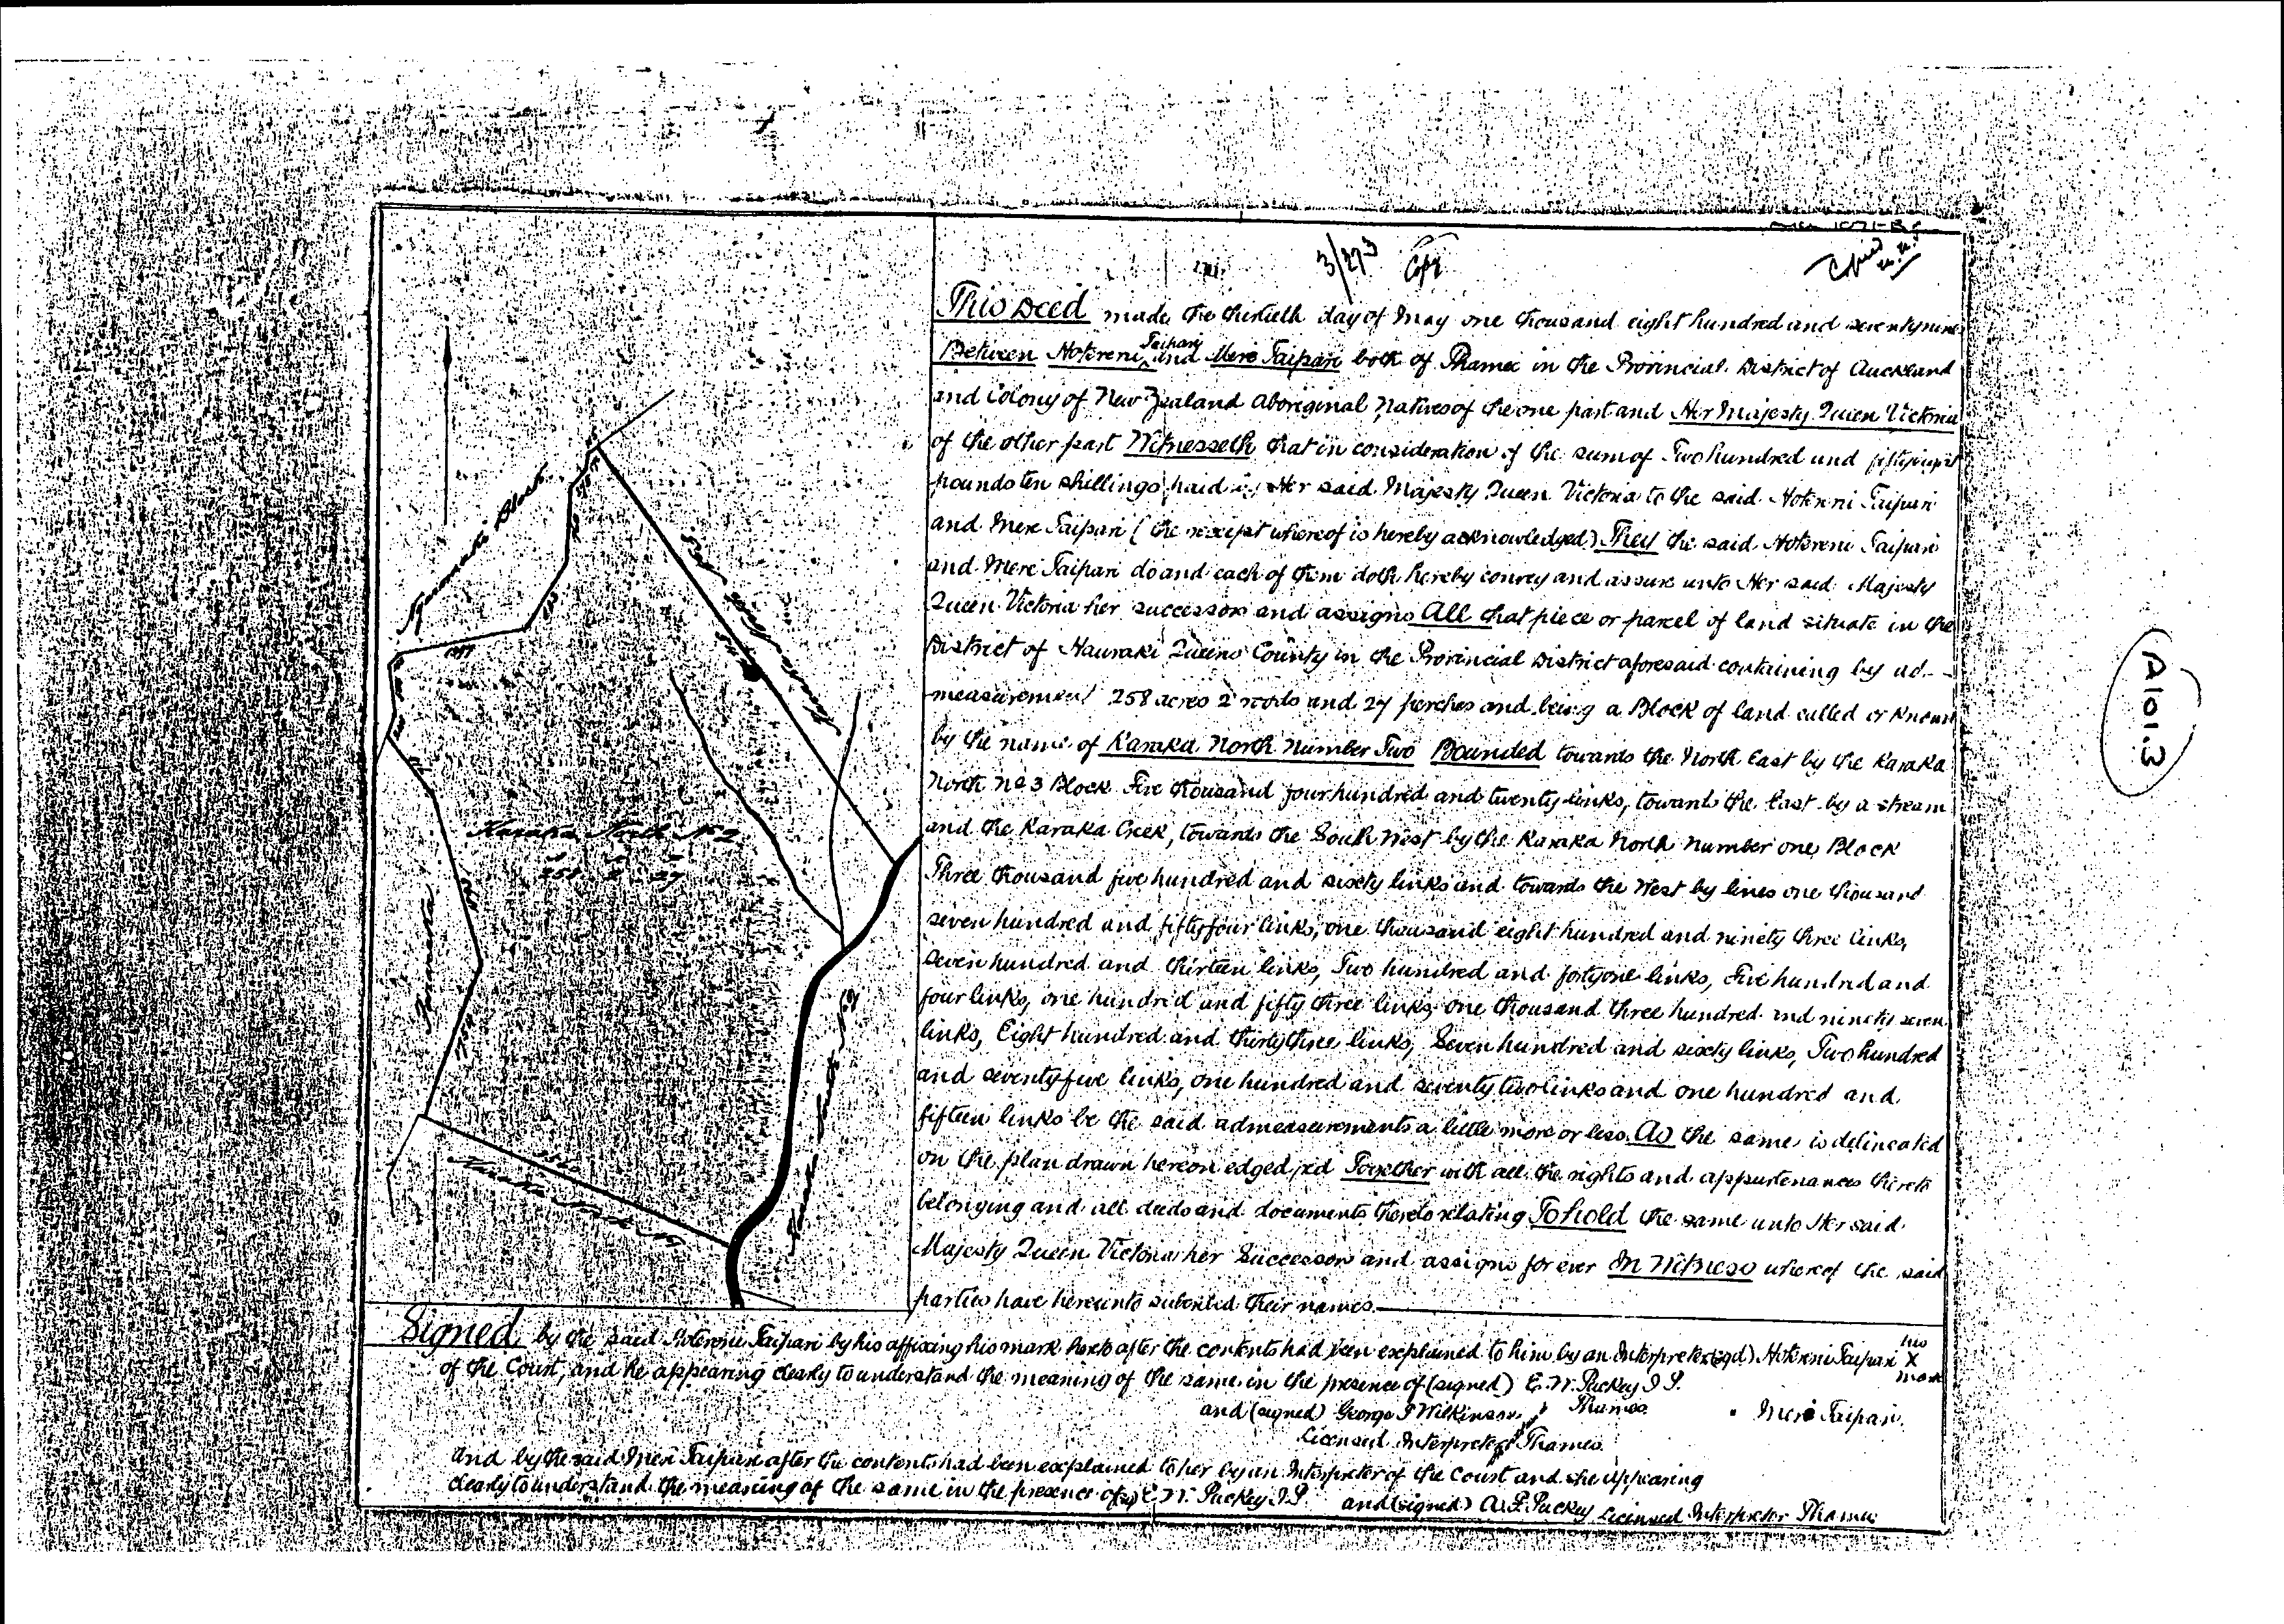 3/273 Copy
This Deed made the thirtieth day of May one thousand eight hundred and seventynine
Between Hotereni Taipari and Mere Taipari both of Thames in the Provincial District of Auckland
and Colony of New Zealand Aboriginal Natives of the one part and Her Majesty Queen Victoria
of the other part Witnesseth that in consideration of the sum of Two hundred and fiftyeight
pounds ten shillings paid by Her said Majesty Queen Victoria to the said Hotereni Taipari
and Mere Taipari (the receipt whereof is hereby acknowledged) They the said Hotereni Taipari
and Mere Taipari do and each of them doth hereby convey and assure unto Her said Majesty
Queen Victoria her successors and assigns All that piece or parcel of land situate in the
District of Hauraki Queens County in the Provincial District aforesaid containing by ad-
measurement 258 acres 2 roods and 27 perches and being a Block of land called or known
by the name of Karaka North Number Two Bounded towards the North East by the Karaka
North No 3 Block Five thousand four hundred and twenty links, towards the East by a stream
and the Karaka Creek, towards the South West by the Karaka North Number one Block
Three thousand five hundred and sixty links and towards the West by lines one thousand
seven hundred and fiftyfour links, one thousand eight hundred and ninety three links,
Seven hundred and thirteen links, Two hundred and fortyone links, Five hundred and
four links, one hundred and fifty three links, one thousand three hundred and ninety seven
links, Eight hundred and thirtythree links, Seven hundred and sixty links, Two hundred
and seventyfive links, one hundred and seventy two links and one hundred and
fifteen links be the said admeasurements a little more or less As the same is delineated
on the plan drawn hereon edged red Together with all the rights and appurtenances thereto
belonging and all deeds and documents thereto relating To hold the same unto Her said
Majesty Queen Victoria her Successors and assigns for ever In Witness whereof the said
parties have hereunto subscribed their names.
Karaka North No 2
258 2 27
Karaka North No 1
3560
1754
5420
Signed by the said Hotereni Taipari by his affixing his mark hereto after the contents had been explained to him by an Interpreter (sgd) Hotereni Taipari his X mark
of the Court, and he appearing clearly to understand the meaning of the same in the presence of (signed) E. W. Puckey J.P.
Thames
and (signed) George T Wilkinson Mere Taipari.
Licensed Interpreter Thames.
And by the said Mere Taipari after the contents had been explained to her by an Interpreter of the Court and she appearing
clearly to understand the meaning of the same in the presence of (sg) E. W. Puckey J.P. and (signed) A. P. Puckey Licensed Interpreter Thames
A101.3